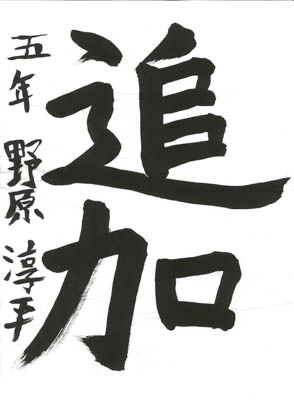 追加
五年 野原 淳平